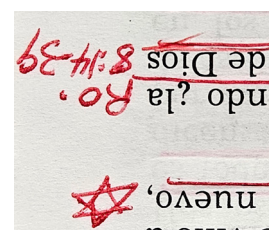 nuevo,
ndo ¿la Ro.
de Dios 8:14-39